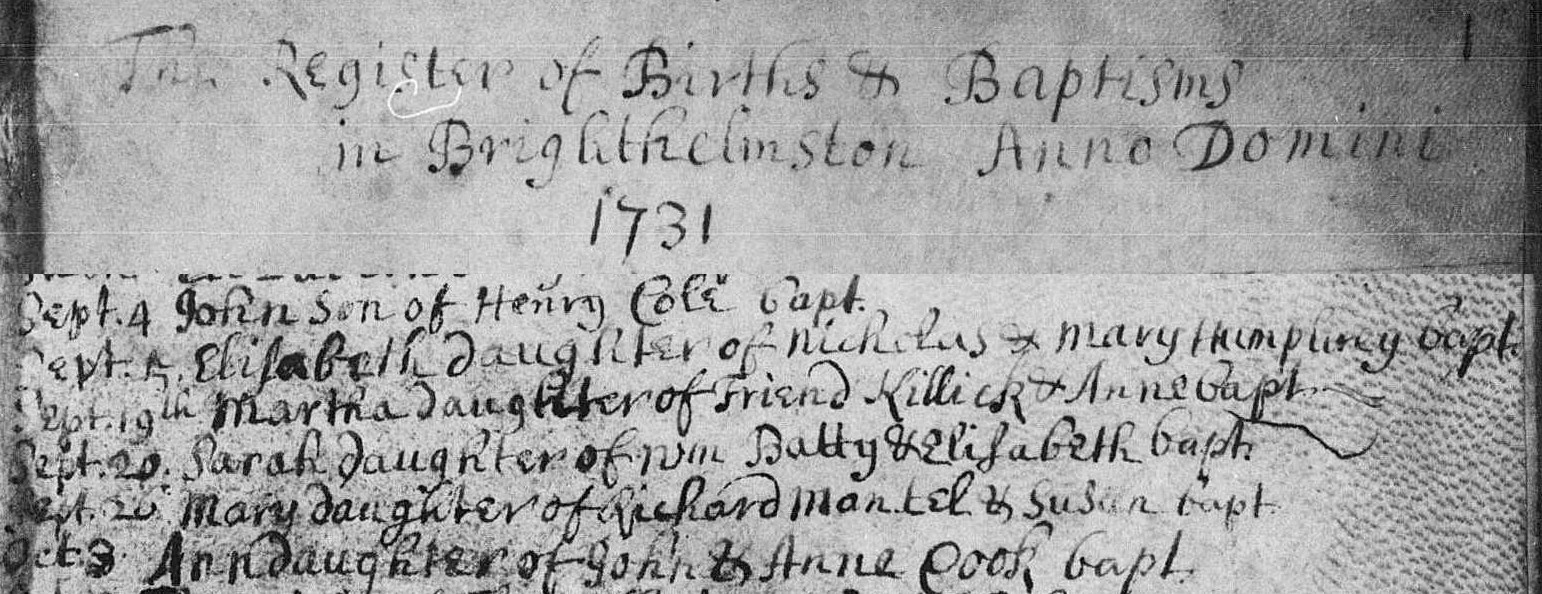 1
The Register of Births & Baptisms
in Brighthelmston Anno Domini
1731
Sept. 4 John Son of Henry Cole bapt.
Sept. 5. Elisabeth daughter of Nicholas & Mary Humphrey bapt.
Sept. 19th Martha daughter of Friend Killick & Anne bapt
Sept. 20. Sarah daughter of Wm Batty & Elisabeth bapt
Sept. 26 Mary daughter of Richard Mantel & Susan bapt
Oct 3 Ann daughter of John & Anne Cook bapt.